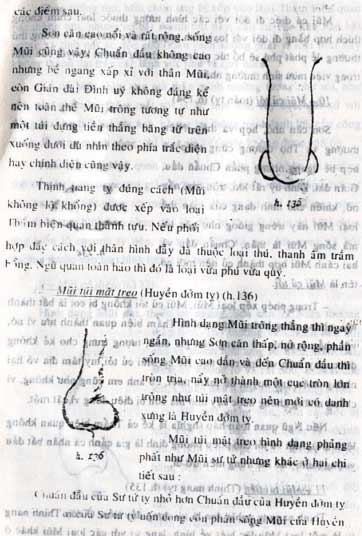 các điểm sau.
Sơn căn cao nổi và rất rộng, sống
Mũi cũng vậy. Chuẩn đầu không cao
nhưng bề ngang xấp xỉ với thân Mũi,
còn Gián đài Đình uý không đáng kể
nên toàn thể Mũi trông tương tự như
một túi đựng tiền thẳng băng từ trên
xuống dưới dù nhìn theo phía trắc diện
hay chính diện cũng vậy.
h. 135
Thịnh nang tỵ đúng cách (Mũi
không lộ khổng) được xếp vào loại
Thảm biện quan thành tựu. Nếu phối
hợp đầy cách với thân hình đẫy đà thuộc loại thú, thanh âm trầm
bổng, Ngũ quan toàn hảo thì đó là loại vừa phú vừa quý.
Mũi túi mật treo (Huyền đởm tỵ) (h.136)
Hình dạng Mũi trông thẳng thì ngay
ngắn, nhưng Sơn căn thấp, nở rộng, phần
sống Mũi cao dần và đến Chuẩn đầu thì
tròn trịa, nẩy nở thành một cục tròn lớn
trông như túi mật treo nên mới có danh
xưng là Huyền đởm tỵ.
Mũi túi mật treo hình dạng phảng
phất như Mũi sư tử nhưng khác ở hai chi
tiết sau :
h. 136
Chuẩn đầu của Sư tử tỵ nhỏ hơn Chuẩn đầu của Huyền đởm tỵ
Mũi của Sư tử tỵ uốn cong còn phần sống Mũi của Huyền